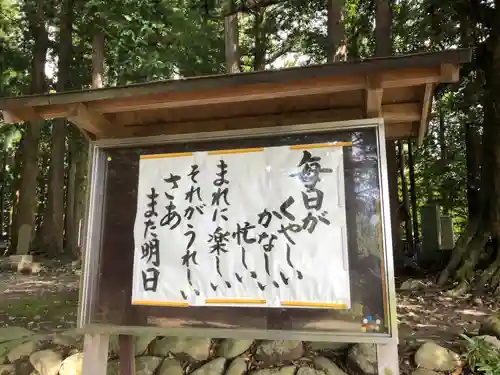 毎日が
くやしい
かなしい
忙しい
まれに楽しい
それがうれしい
さあ
また明日